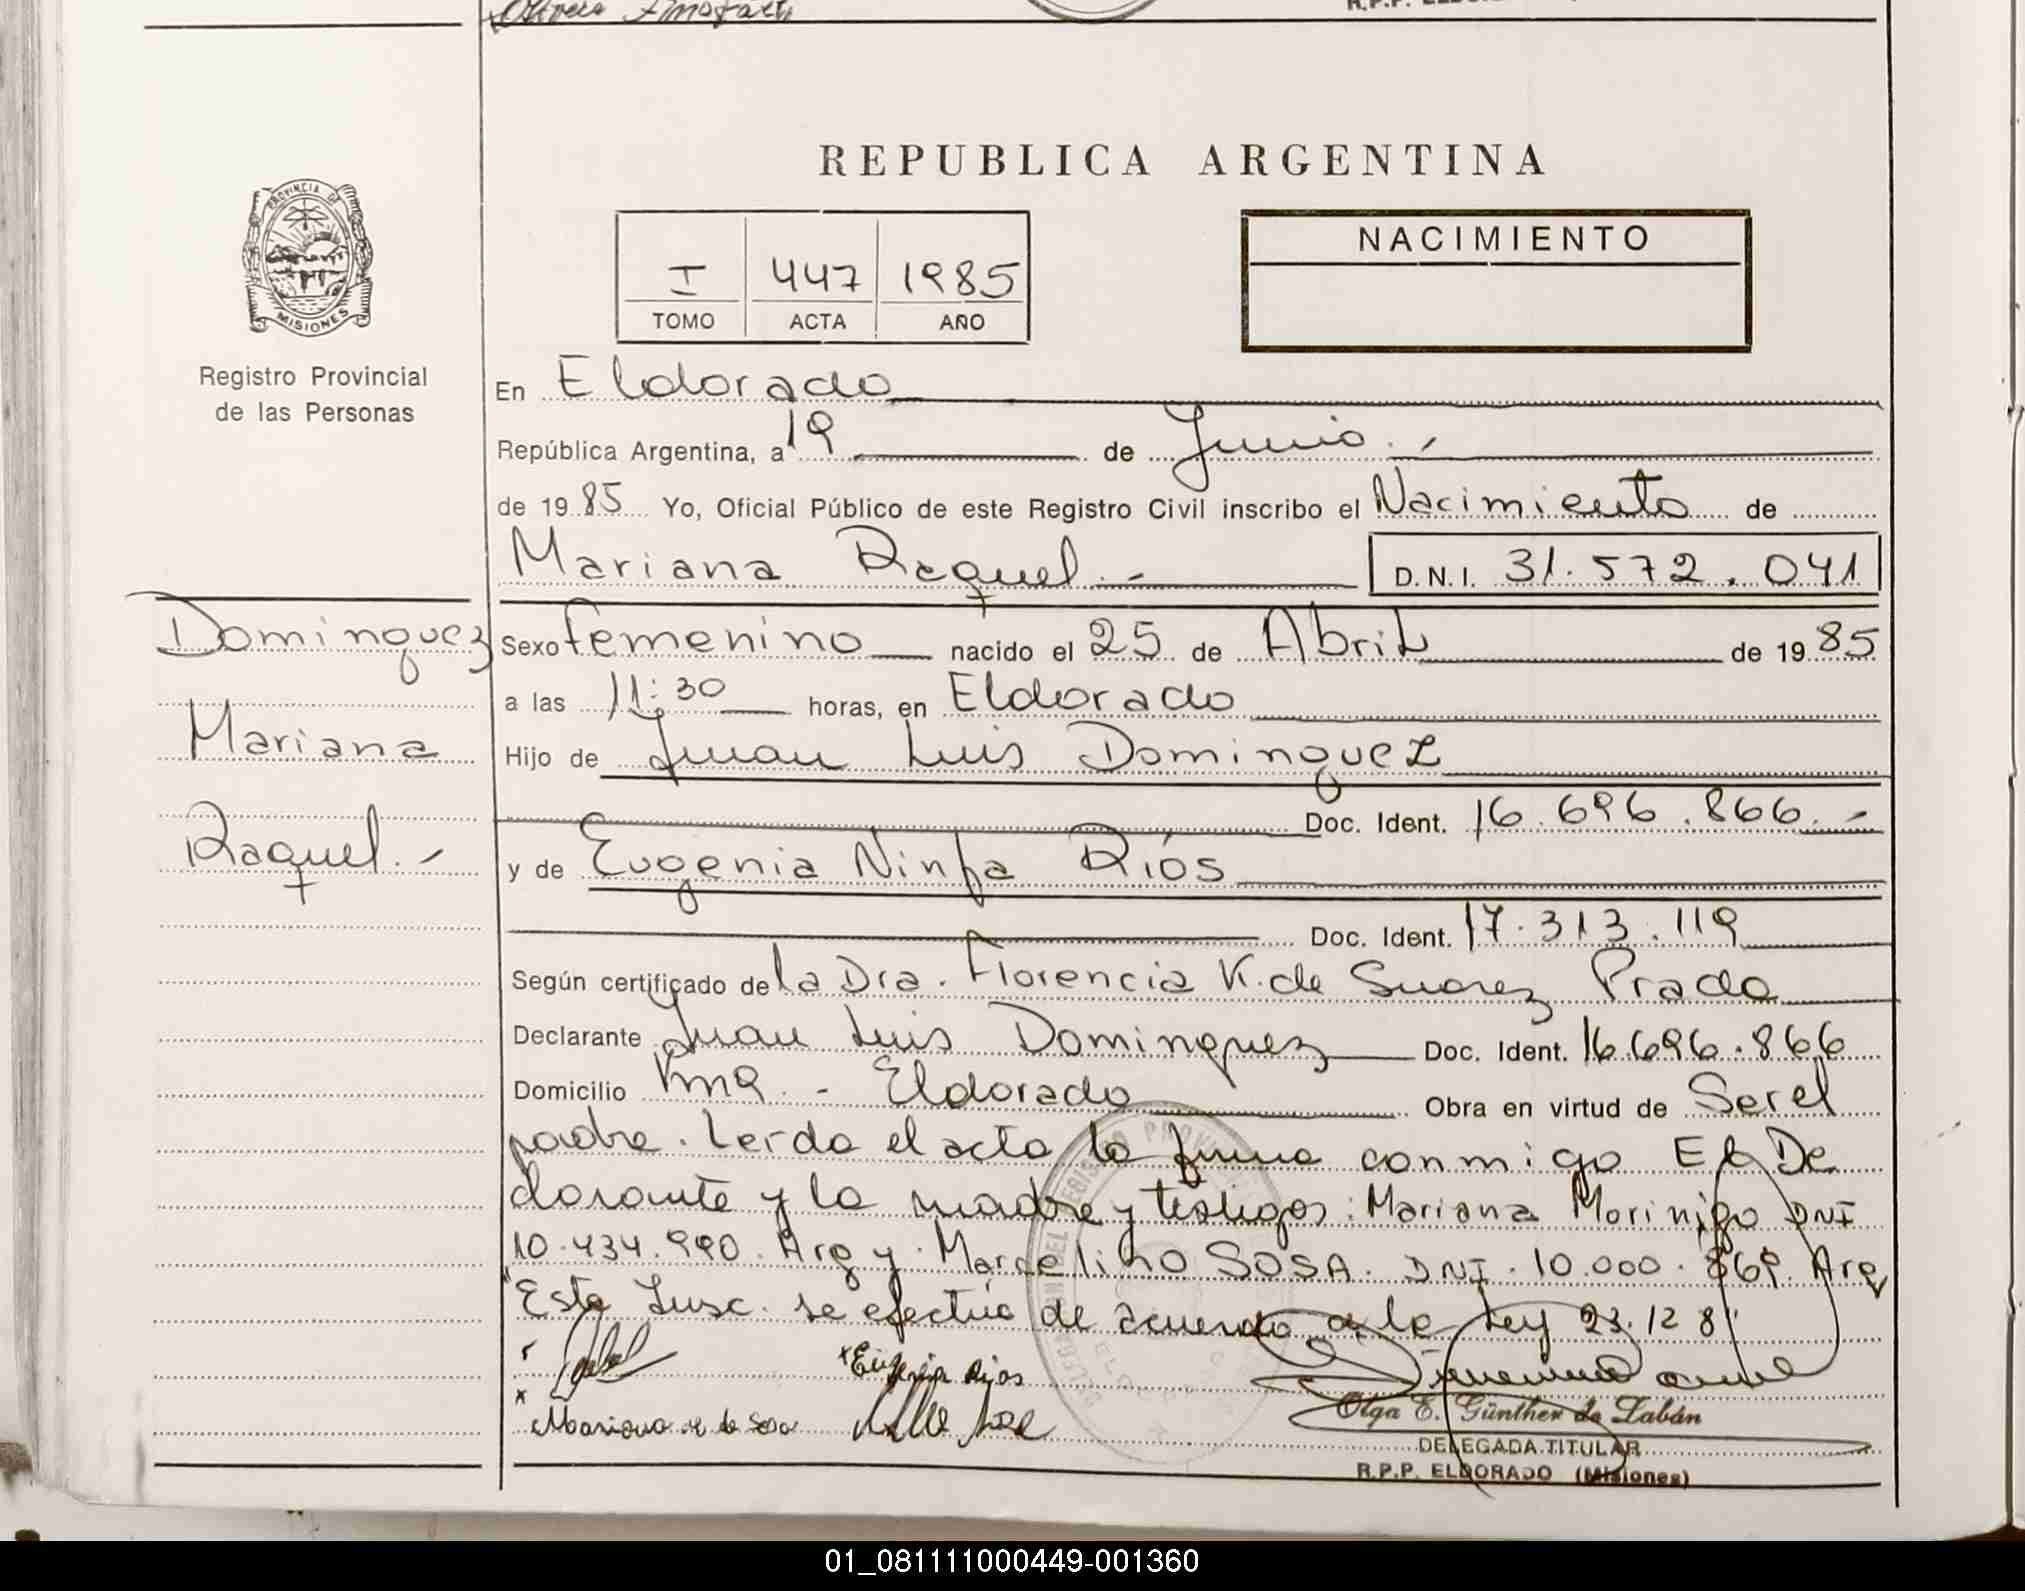 REPUBLICA ARGENTINA
PROVINCIA DE
MISIONES
Registro Provincial
de las Personas
I 447 1985
TOMO ACTA AÑO
NACIMIENTO
En Eldorado
República Argentina, a 19 de Junio.-
de 1985 Yo, Oficial Público de este Registro Civil inscribo el Nacimiento de
Mariana Raquel.- D.N.I. 31.572.041
Dominguez
Mariana
Raquel.-
Sexo femenino nacido el 25 de Abril de 1985
a las 11:30 horas, en Eldorado
Hijo de Juan Luis Dominguez
Doc. Ident. 16.696.866.-
y de Eugenia Ninfa Riós
Doc. Ident. 17.313.119
Según certificado de la Dra. Florencia K. de Suarez Prado
Declarante Juan Luis Dominguez Doc. Ident. 16.696.866
Domicilio Km9.- Eldorado Obra en virtud de Ser el
padre. Leida el acta la firma conmigo El De
clarante y la madre y testigos: Mariana Morinigo DNI
10.434.990. Arg y. Marcelino SOSA. DNI. 10.000.869. Arg
"Esta Insc. se efectúa de acuerdo a la Ley 23.128"
x Eugenia Rios
x Mariana M de Sosa
Olga E. Günther de Labán
DELEGADA TITULAR
R.P.P. ELDORADO (Misiones)
01_081111000449-001360